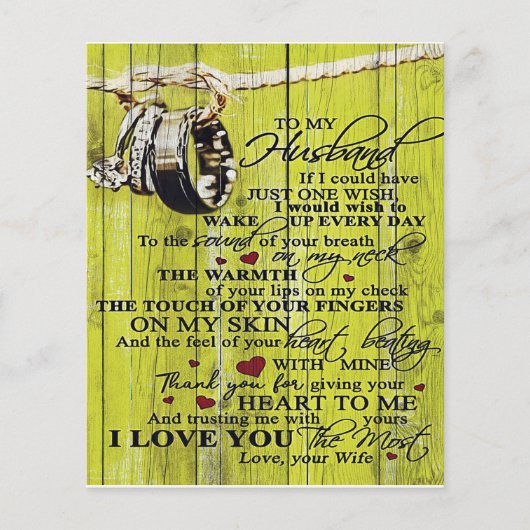 TO MY
Husband
If I could have
JUST ONE WISH
I would wish to
WAKE UP EVERY DAY
To the sound of your breath
on my neck
THE WARMTH
of your lips on my check
THE TOUCH OF YOUR FINGERS
ON MY SKIN
And the feel of your heart beating
WITH MINE
Thank you for giving your
HEART TO ME
And trusting me with yours
I LOVE YOU The Most
Love, your Wife